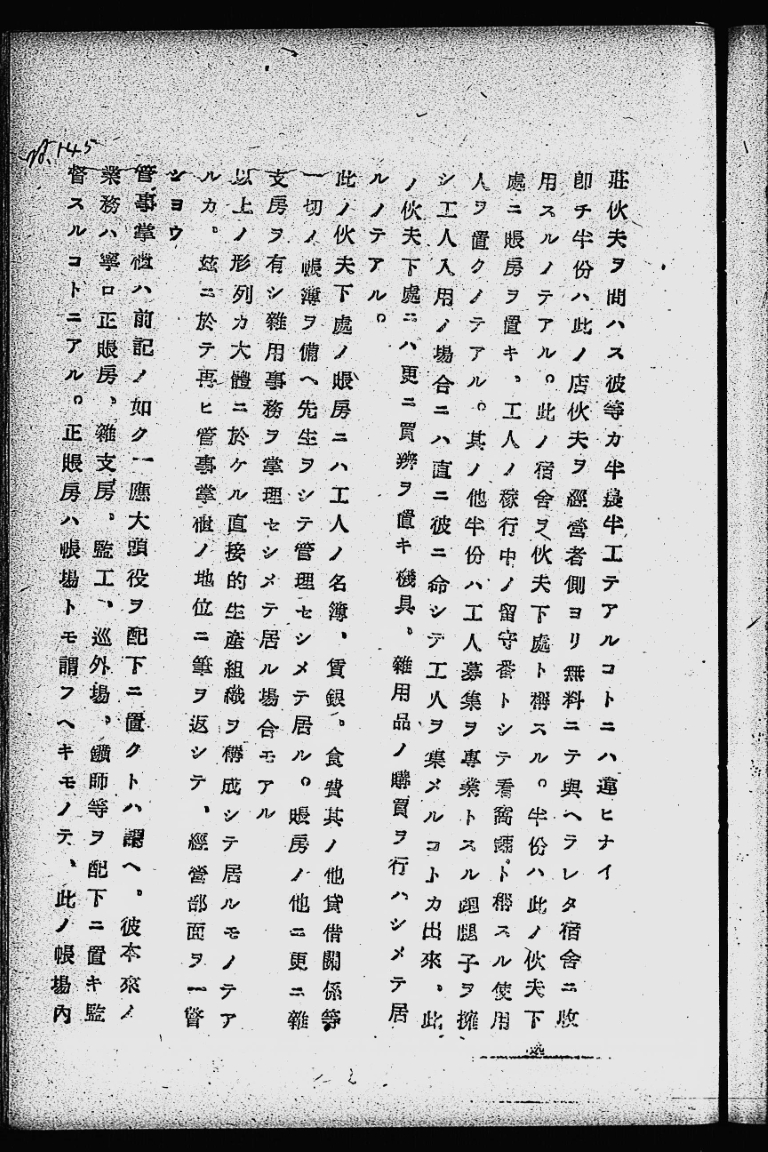 莊伙夫ヲ問ハス彼等カ半農半工テアルコトニハ違ヒナイ
卽チ半份ハ此ノ店伙夫ヲ經營者側ヨリ無料ニテ與ヘラレタ宿舍ニ收
用スルノテアル。此ノ宿舍ヲ伙夫下處ト稱スル。半份ハ此ノ伙夫下
處ニ賬房ヲ置キ、工人ノ稼行中ノ留守番トシテ看窩鋪ト稱スル使用
人ヲ置クノテアル。其ノ他半份ハ工人募集ヲ專業トスル跑腿子ヲ擁
シ工人入用ノ場合ニハ直ニ彼ニ命シテ工人ヲ集メルコトカ出來、此
ノ伙夫下處ニハ更ニ買辨ヲ置キ機具、雜用品ノ購買ヲ行ハシメテ居
ルノテアル。
此ノ伙夫下處ノ賬房ニハ工人ノ名簿、賃銀。食費其ノ他貸借關係等
一切ノ帳簿ヲ備ヘ先生ヲシテ管理セシメテ居ル。賬房ノ他ニ更ニ雜
支房ヲ有シ雜用事務ヲ掌理セシメテ居ル場合モアル
以上ノ形列カ大體ニ於ケル直接的生產組織ヲ構成シテ居ルモノテア
ルカ。玆ニ於テ再ヒ管事掌櫃ノ地位ニ筆ヲ返シテ、經營部面ヲ一瞥
シヨウ
管事掌櫃ハ前記ノ如ク一應大頭役ヲ配下ニ置クトハ謂ヘ。彼本來ノ
業務ハ寧ロ正賬房、雜支房。監工、巡外場、鑛師等ヲ配下ニ置キ監
督スルコトニアル。正賬房ハ帳場トモ謂フヘキモノテ、此ノ帳場內
p.145